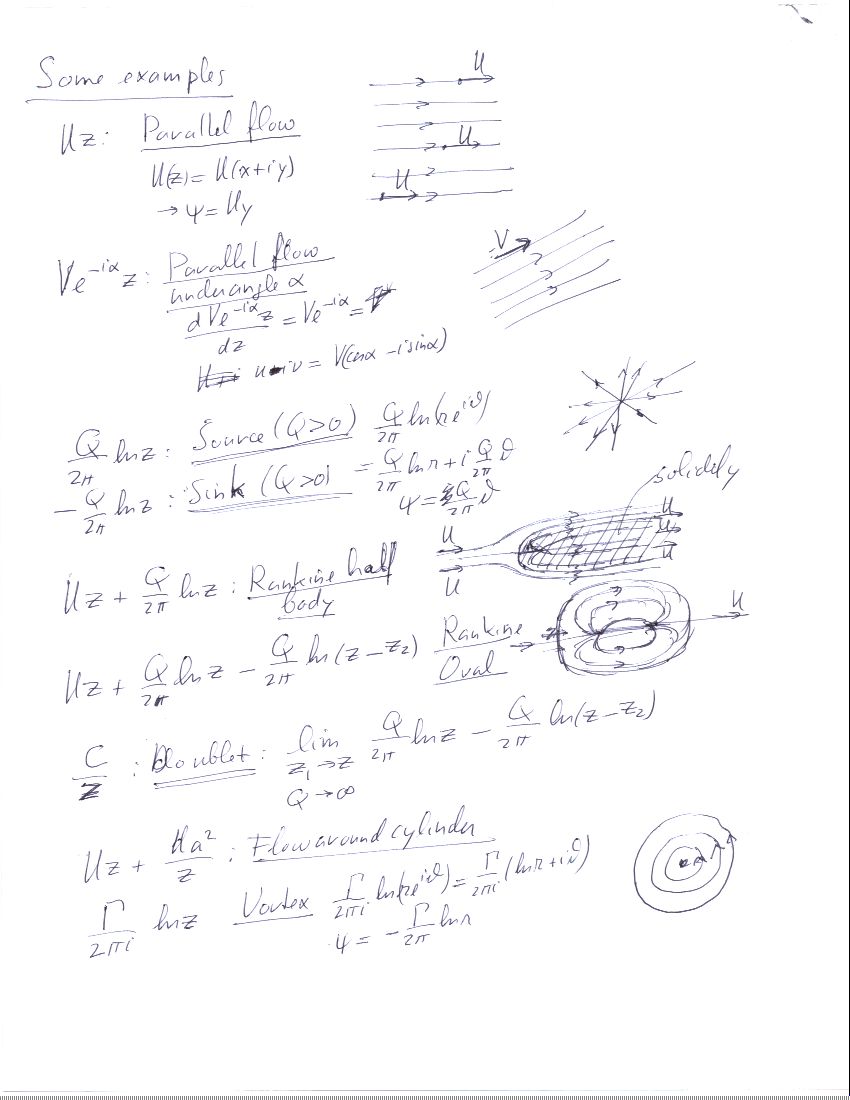 Some examples
U
Uz: Parallel flow
U(z) = U(x+iy)
U
→ ψ = Uy
U
Ve^{-iα} z : Parallel flow
under angle α
V
dVe^{-iα}z / dz = Ve^{-iα} =
u-iv = V(cosα - i sinα)
Q/2π ln z : Source (Q>0) Q/2π ln(re^{iϑ})
- Q/2π ln z : Sink (Q>0) = Q/2π ln r + i Q/2π ϑ
ψ = Q/2π ϑ
U U
U U
U
Uz + Q/2π ln z : Rankine half
body
Uz + Q/2π ln z - Q/2π ln(z-z₂) Rankine
Oval
U
C/z : Doublet : lim Q/2π ln z - Q/2π ln(z-z₂)
z₁ → z
Q → ∞
Uz + Ua²/z : Flow around cylinder
Γ/2πi ln z Vortex Γ/2πi ln(re^{iϑ}) = Γ/2πi (ln r + iϑ)
ψ = - Γ/2π ln r